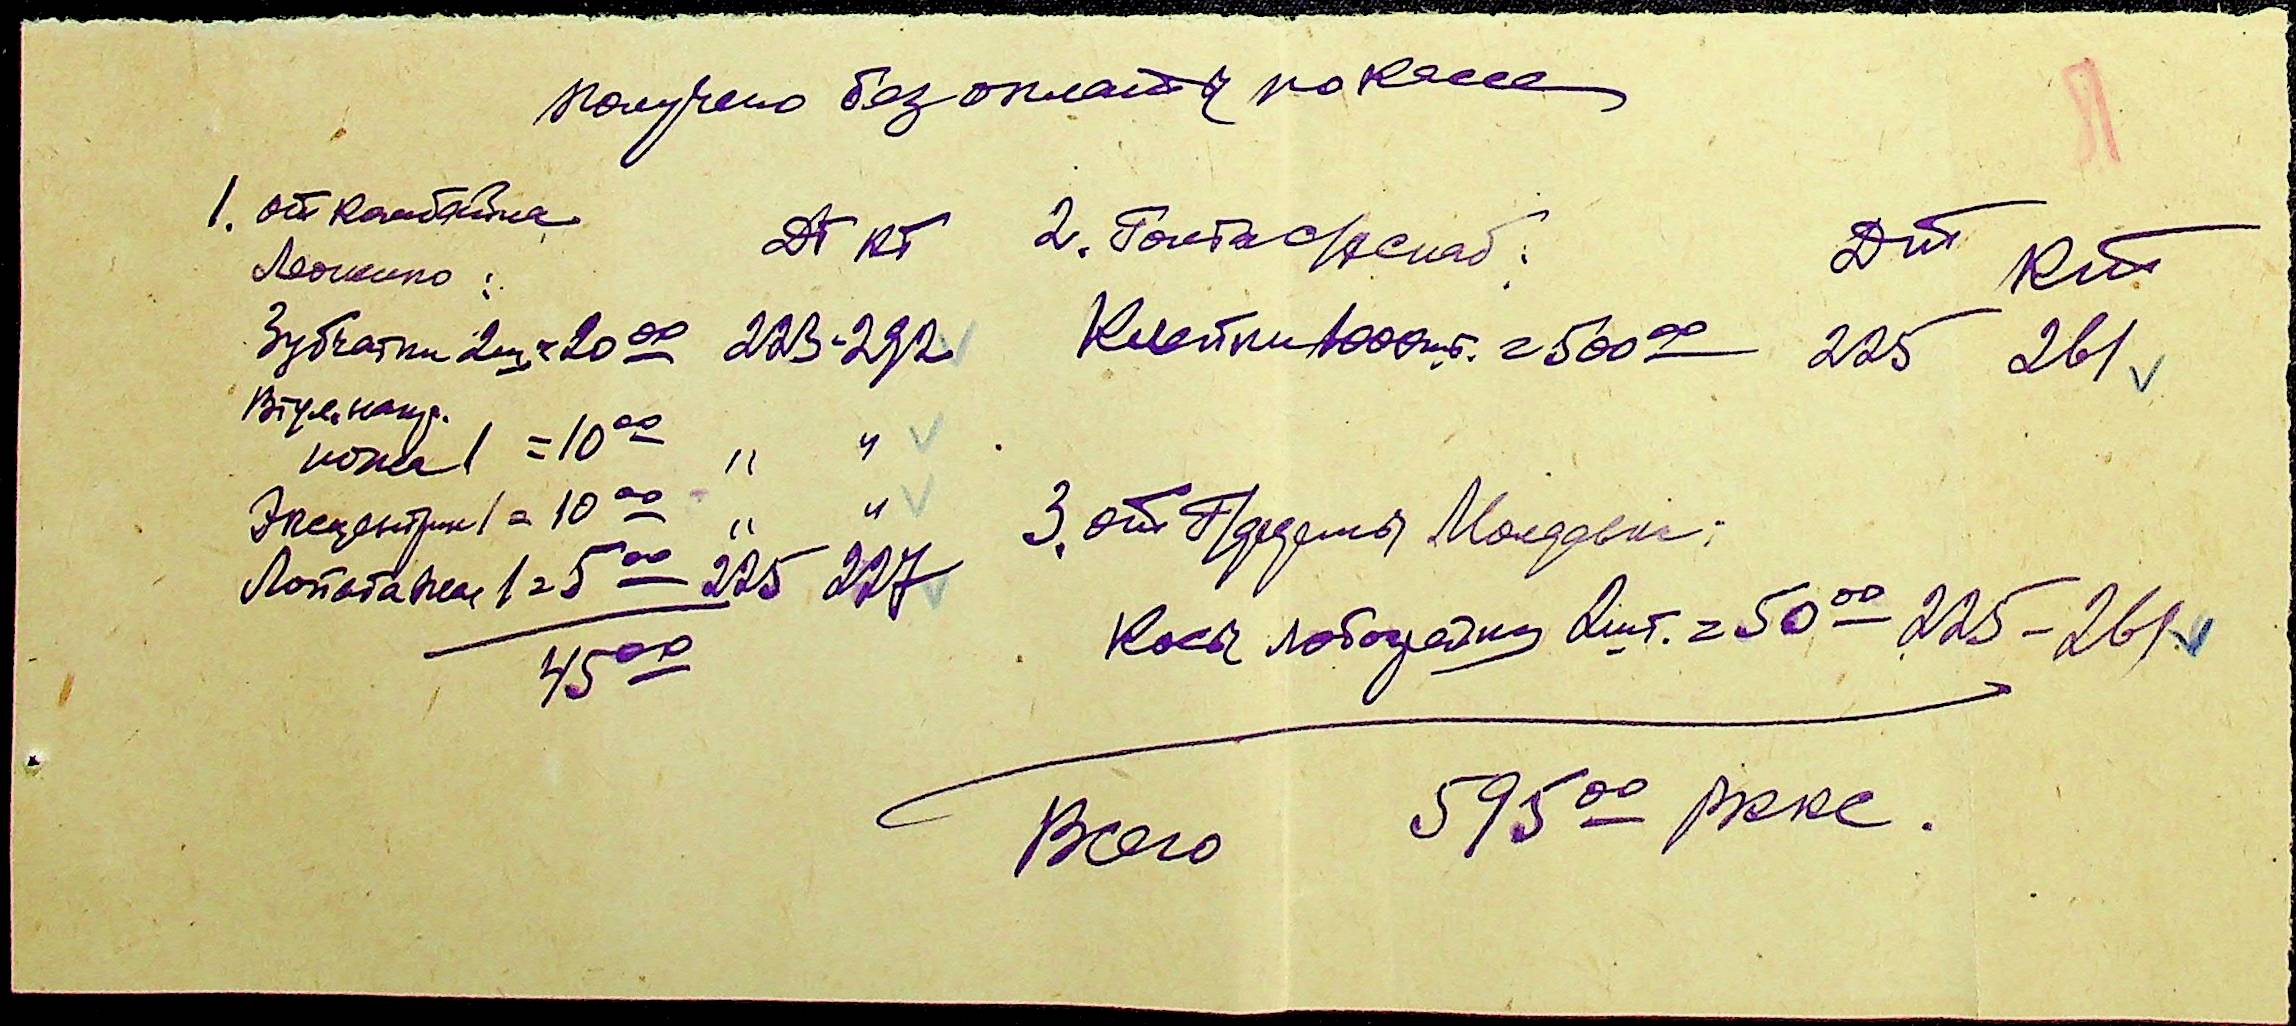 Получено без оплаты по кассе
Я
1. от комбайна
Дт Кт
Зубчатки 2шт = 20 00 223-292
Втул. напр.
ножа 1 = 10 00 " "
Эксцентрик 1 = 10 00 " "
Лопата 1 = 5 00 225 227
45 00
2.
Дт Кт
Клепки 1000шт. = 500 00 225 261
3. от Молдовы:
Косы лобогрейки 2шт. = 50 00 225-261
Всего 595 00